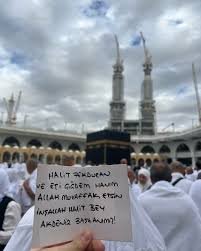 HALİT PEKDURAN
VE EŞİ GİZDEM HANIM
ALLAH MUVAFFAK ETSİN
İNŞALLAH ÜMİT BEY
AKDENİZ BAŞKANIM!